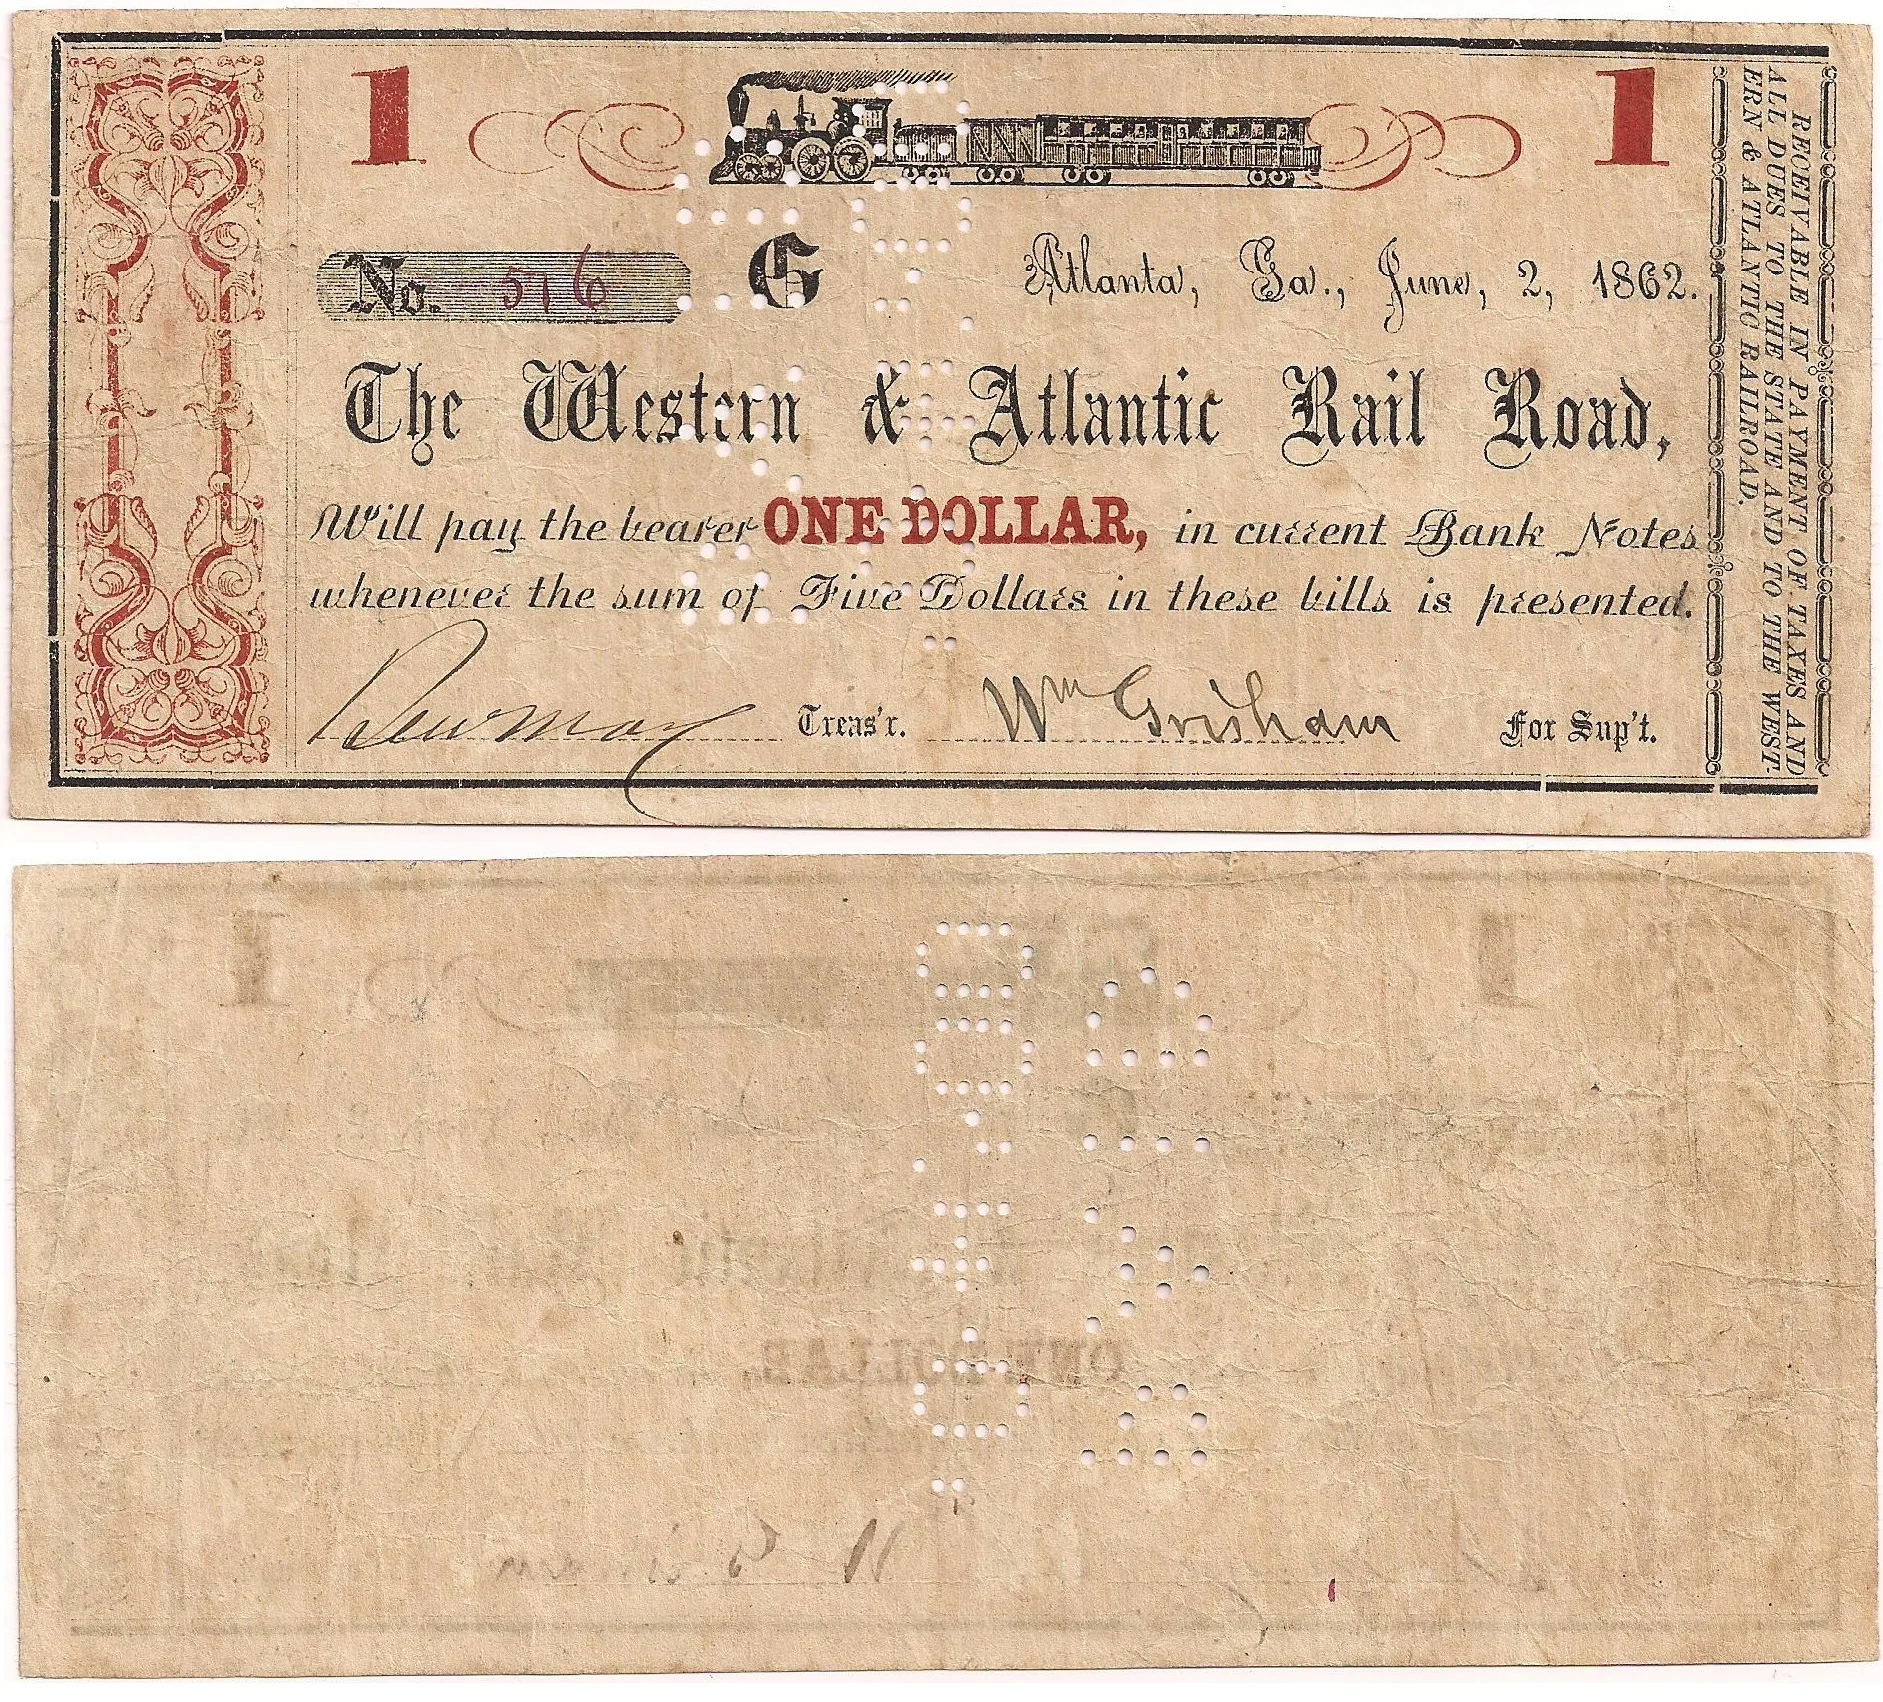 1 1
No. 576 G Atlanta, Ga., June, 2, 1862.
The Western & Atlantic Rail Road,
Will pay the bearer ONE DOLLAR, in current Bank Notes
whenever the sum of Five Dollars in these bills is presented.
Treas'r. Wm Grisham For Sup't.
RECEIVABLE IN PAYMENT OF TAXES AND
ALL DUES TO THE STATE AND TO THE WEST-
ERN & ATLANTIC RAILROAD.